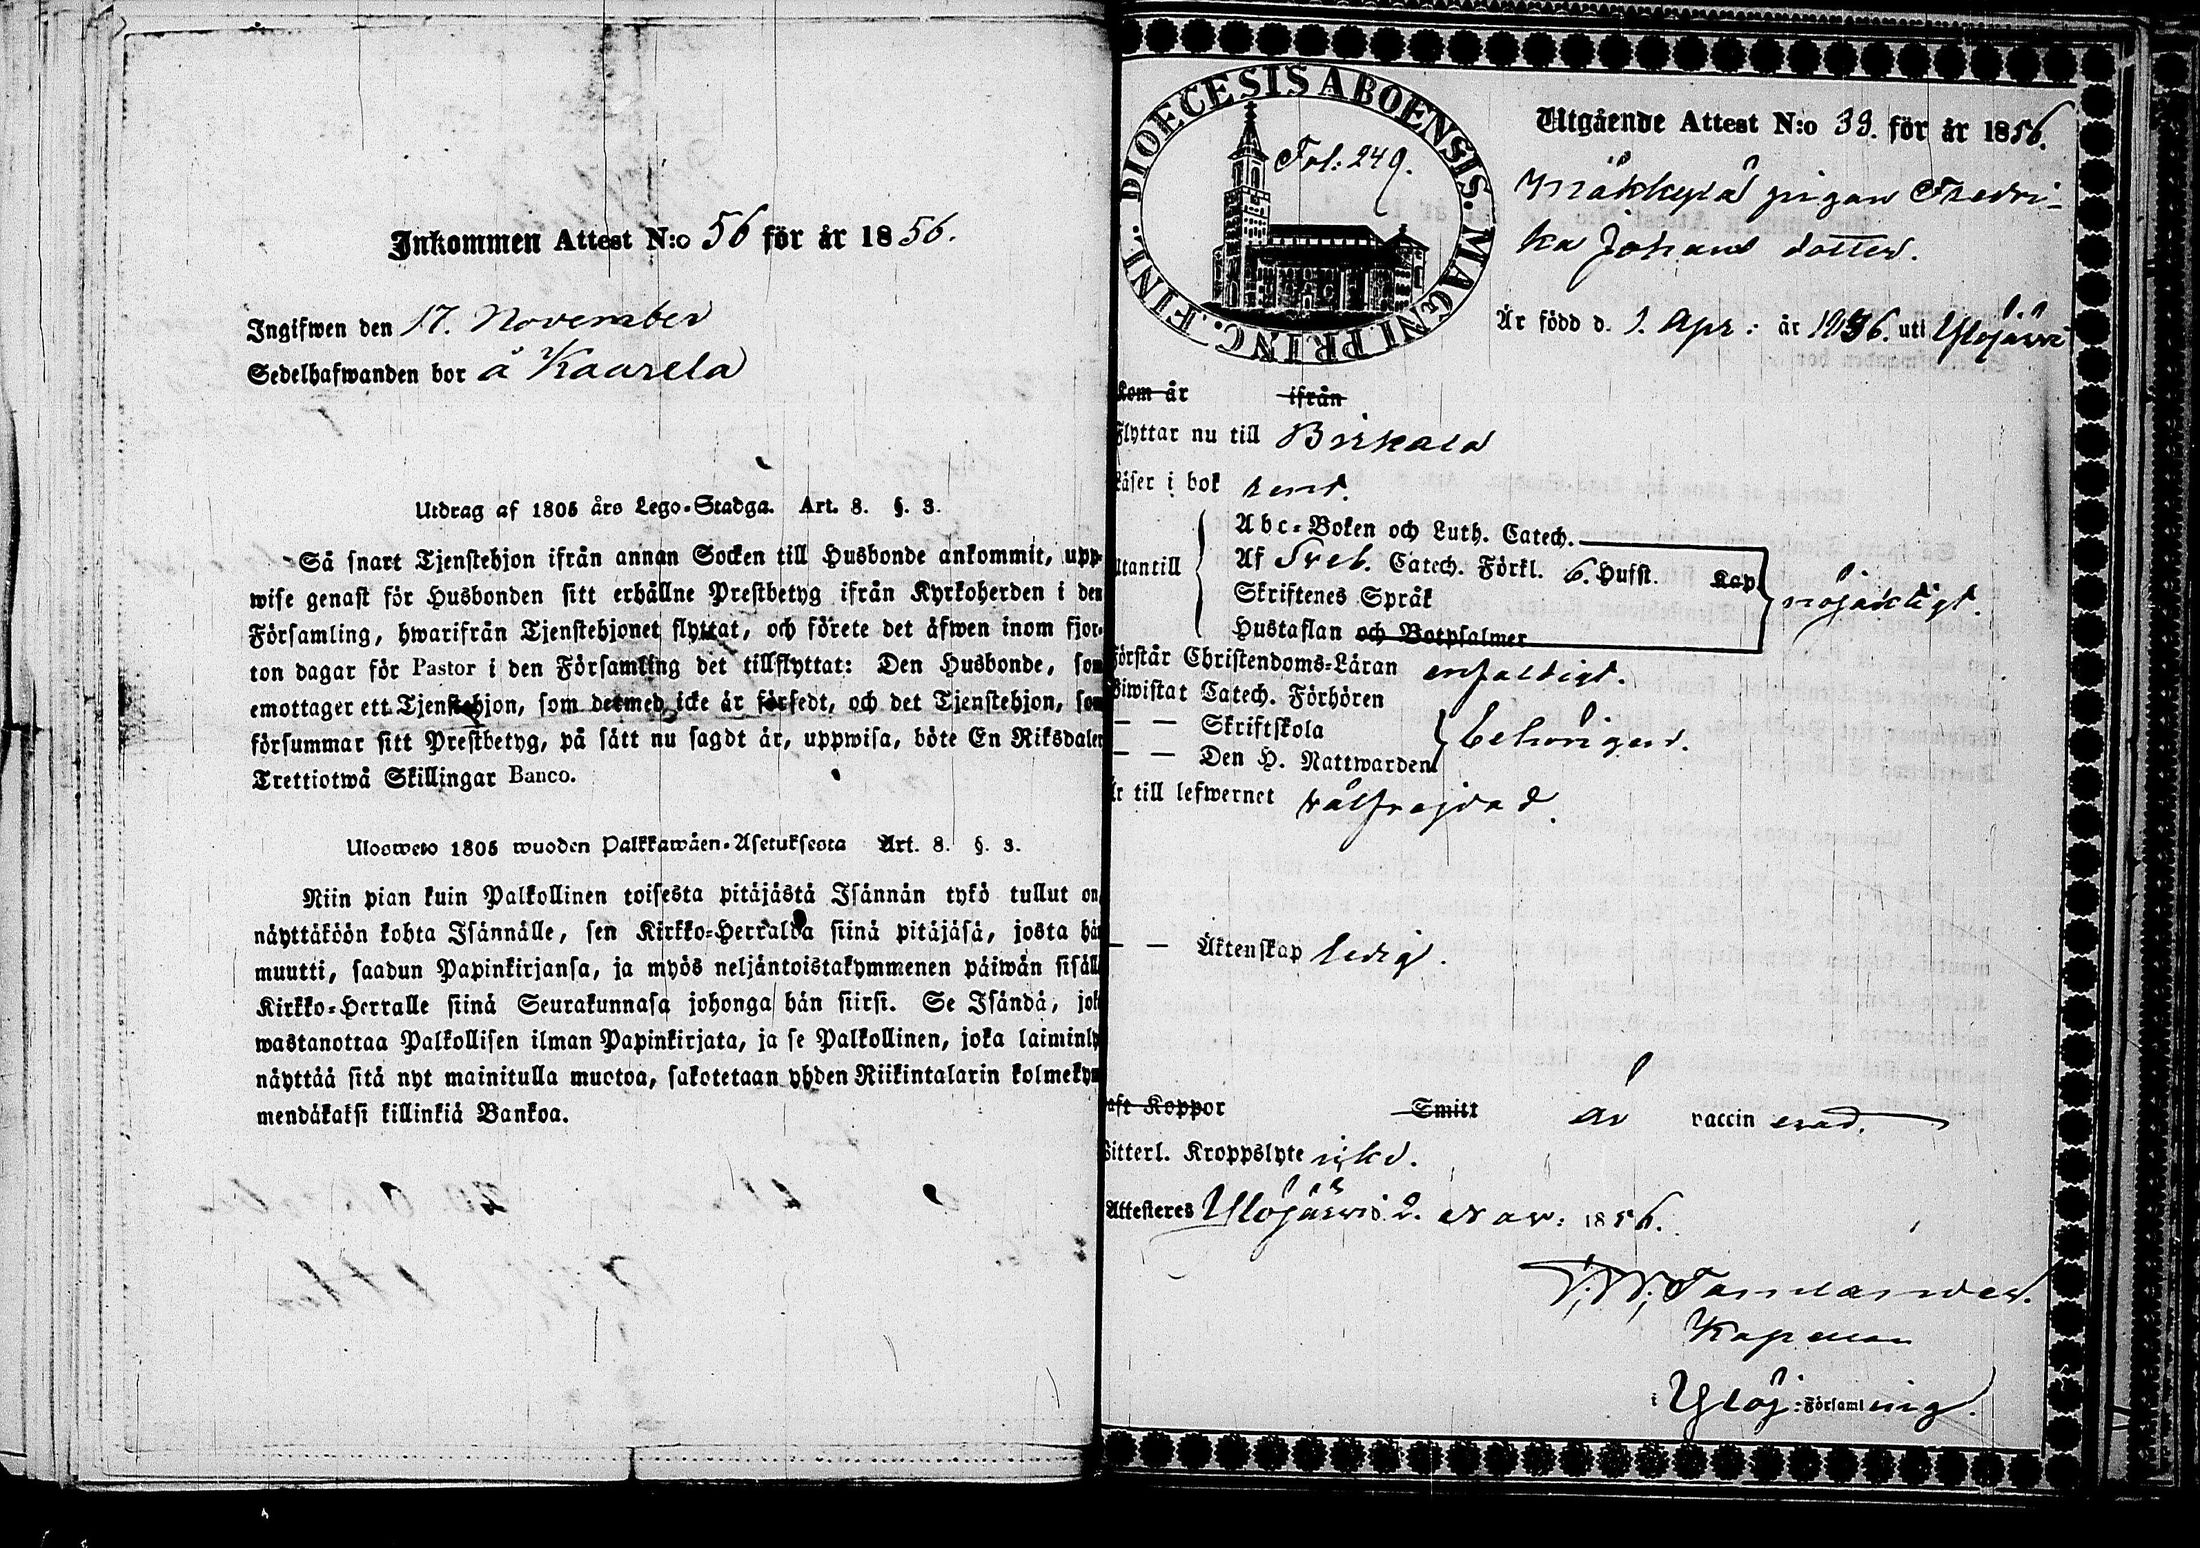 Inkommen Attest N:o 56 för år 1856.
Ingifwen den 17. November
Sedelhafwanden bor å Kaarela
Utdrag af 1805 års Lego-Stadga. Art. 8. §. 3.
Så snart Tjenstehjon ifrån annan Socken till Husbonde ankommit, upp-
wise genast för Husbonden sitt erhållne Prestbetyg ifrån Kyrkoherden i den
Församling, hwarifrån Tjenstehjonet flyttat, och förete det äfwen inom fjor-
ton dagar för Pastor i den Församling det tillflyttat: Den Husbonde, som
emottager ett Tjenstehjon, som dermed icke är försedt, och det Tjenstehjon, som
försummar sitt Prestbetyg, på sätt nu sagdt är, uppwisa, böte En Riksdaler
Trettiotwå Skillingar Banco.
Ulosweto 1805 wuoden Palkkawäen-Asetuksesta Art. 8. §. 3.
Niin pian kuin Palkollinen toisesta pitäjästä Isännän tykö tullut on,
näyttäköön kohta Isännälle, sen Kirkko-Herralda siinä pitäjäsä, josta hän
muutti, saadun Papinkirjansa, ja myös neljäntoistakymmenen päiwän sisäll
Kirkko-Herralle siinä Seurakunnasa johonga hän siirsi. Se Isändä, jok
wastanottaa Palkollisen ilman Papinkirjata, ja se Palkollinen, joka laiminly
näyttää sitä nyt mainitulla muotoa, sakotetaan yhden Riikintalarin kolmekym
mendäkaksi killinkiä Bankoa.
DIOECESIS ABOENSIS. MAGNI PRINC. FINL.
Fol: 249.
Utgående Attest N:o 33. för år 1856.
Mäkkylä pigan Fredri-
ka Johans dotter.
Är född d. 1. Apr: år 1836. uti Ylöjärvi
Kom år ifrån
Flyttar nu till Birkala
Läser i bok rent.
Abc-Boken och Luth. Catech.
Utantill Af Sveb. Catech. Förkl. 6. Hufst. Kap. nöjaktigt.
Skriftenes Språk
Hustaflan och Botpsalmer
Förstår Christendoms-Läran enfaldigt.
Biwistat Catech. Förhören
— — Skriftskola behörigen.
— — Den H. Nattwarden
Är till lefwernet välfrejdad.
— — Äktenskap ledig.
Haft Koppor Smitt är vaccinerad.
Witterl. Kroppslyte icke.
Attesteres Ylöjärvi 2. Nov: 1856.
Kapellan
i Ylöj: Församling.